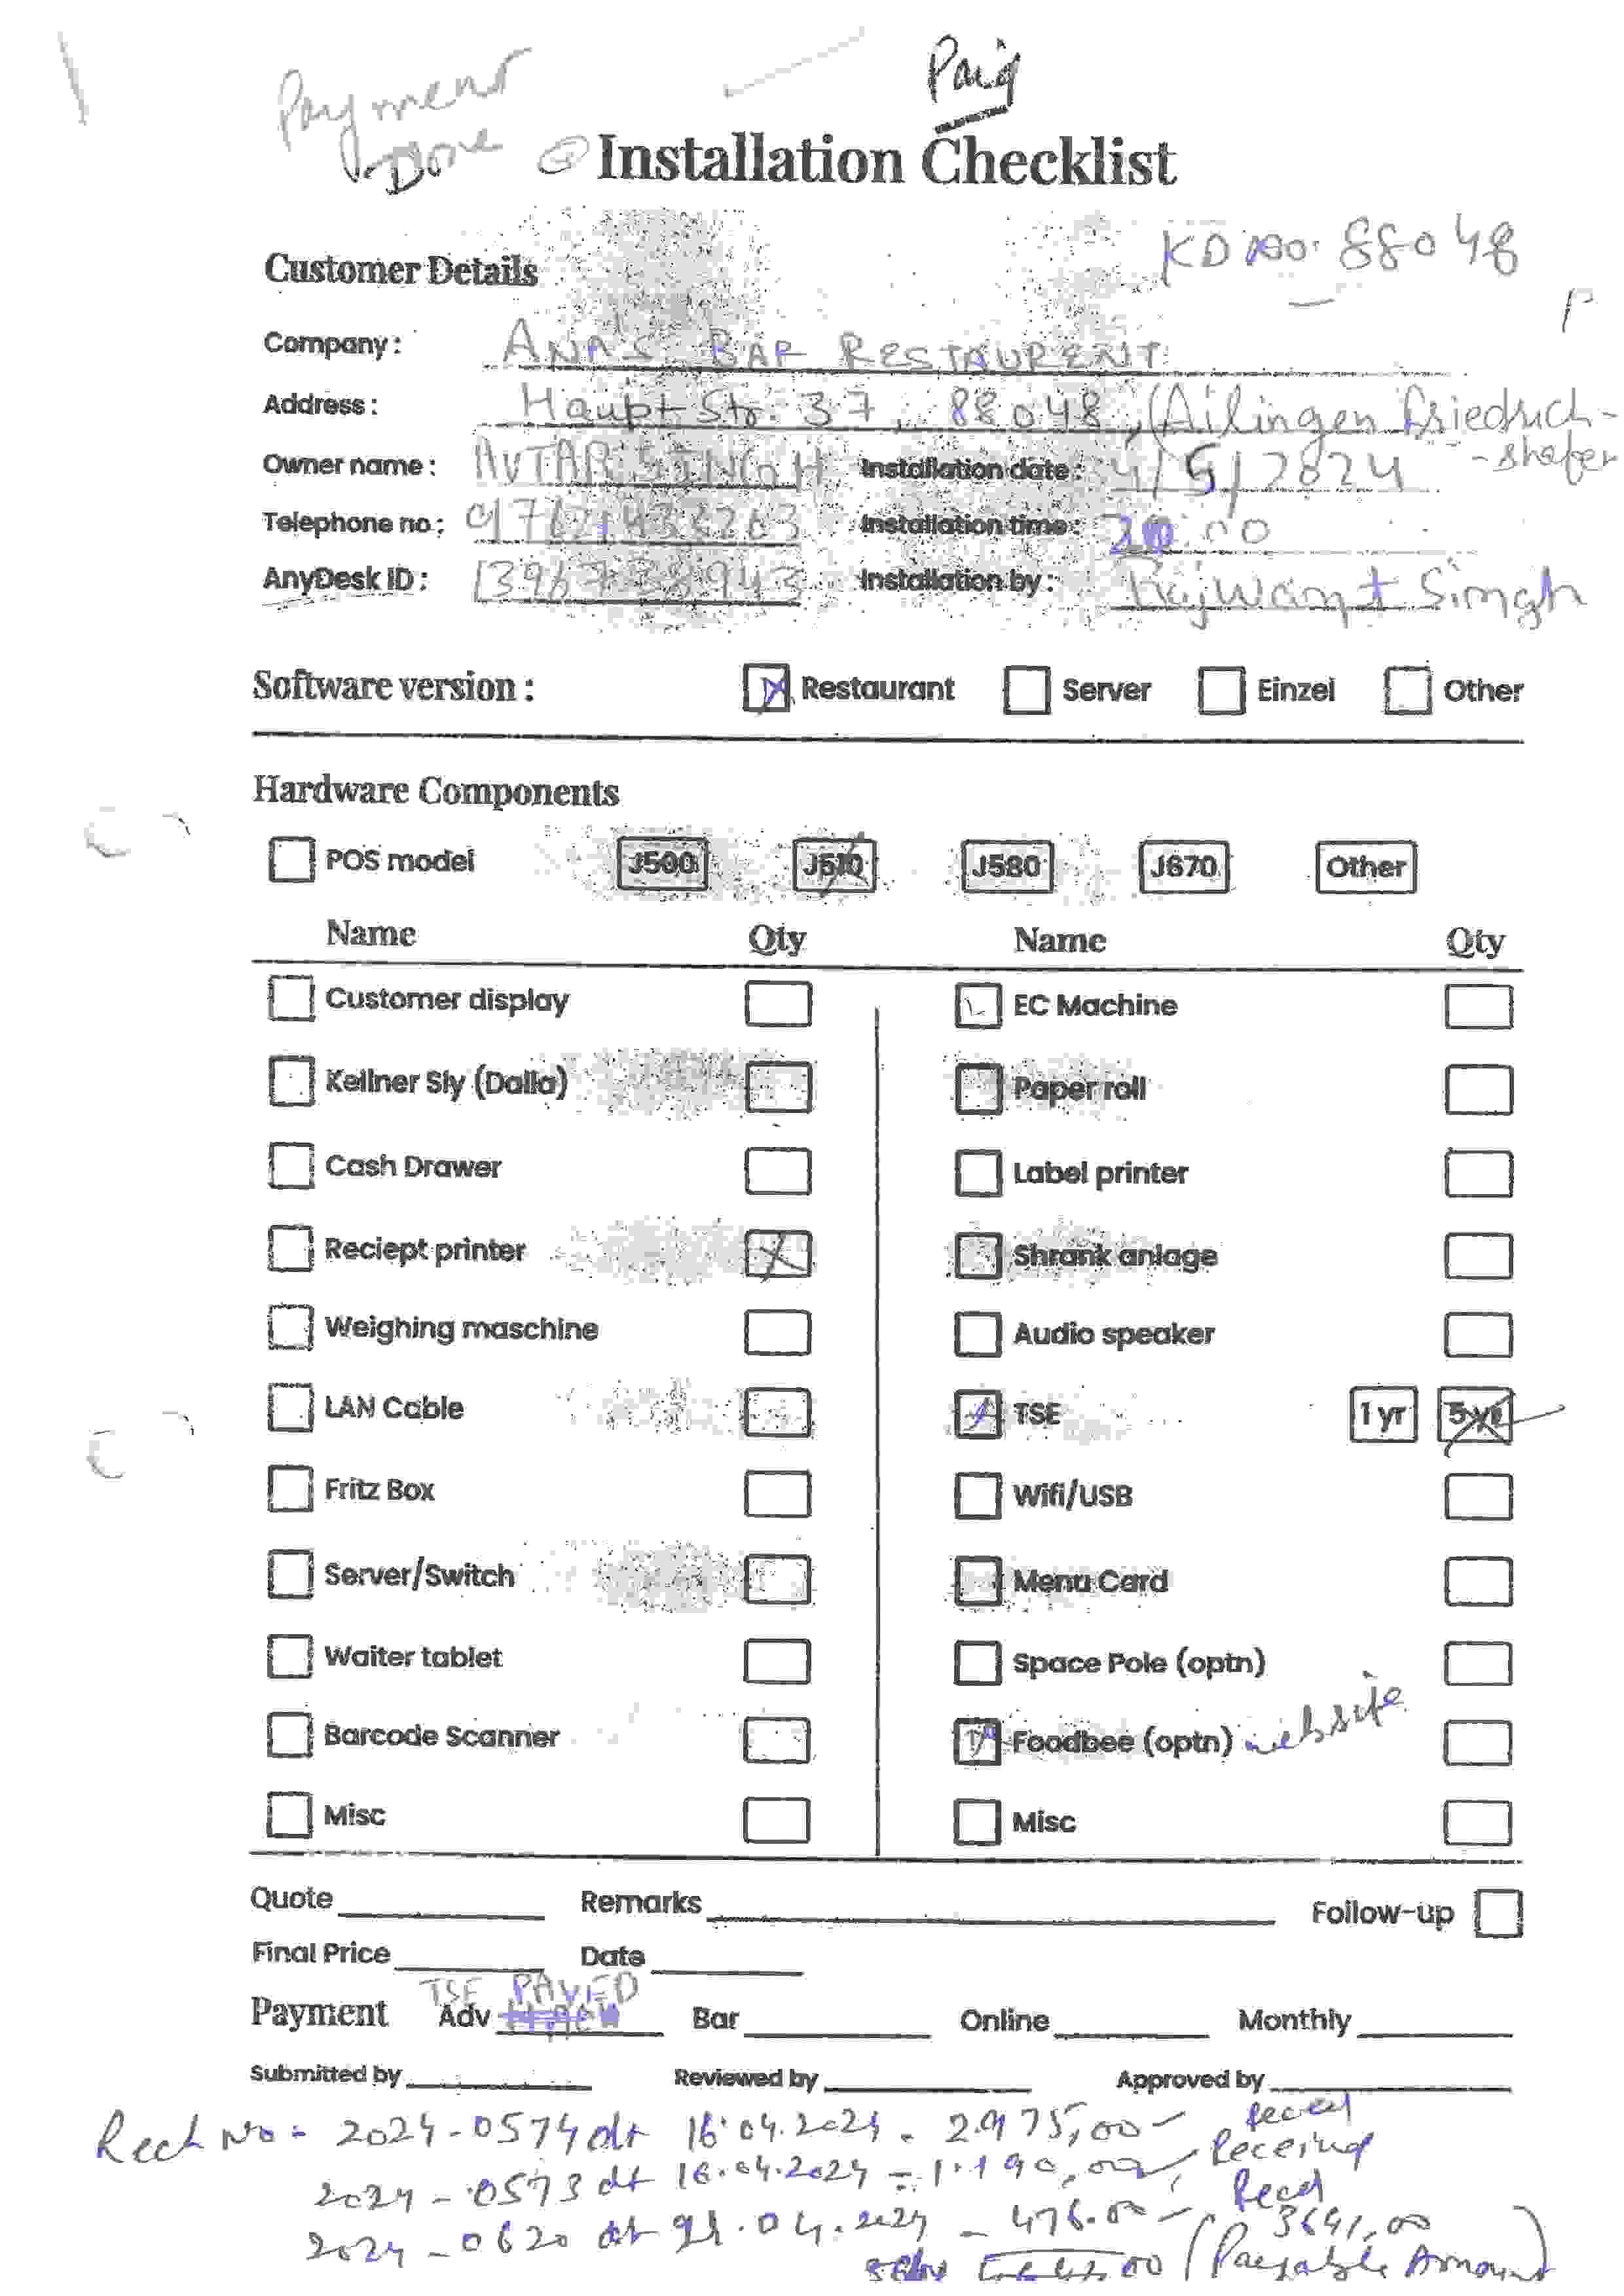 Paid
Payment
Done
Installation Checklist
KD No. 88048
Customer Details
Company : ANAS BAR RESTAURENT
Address : Haupt Str. 37, 88048, (Ailingen Friedrich-
-shafen
Owner name : AVTAR SINGH Installation date : 4/5/2024
Telephone no : 017621433263 Installation time : 00
AnyDesk ID : 1396738943 Installation by : Rajwant Singh
Software version : Restaurant Server Einzel Other
Hardware Components
POS model J500 J510 J580 J670 Other
Name Qty Name Qty
Customer display EC Machine
Kellner Sly (Dalla) Paper roll
Cash Drawer Label printer
Reciept printer X Shrank anlage
Weighing maschine Audio speaker
LAN Cable TSE 1 yr 5 yr
Fritz Box Wifi/USB
Server/Switch Menu Card
Waiter tablet Space Pole (optn)
Barcode Scanner Foodbee (optn) website
Misc Misc
Quote Remarks Follow-up
Final Price Date
TSE PAYED
Payment Adv Bar Online Monthly
Submitted by Reviewed by Approved by
Rech No = 2024-0574 dt 16.04.2024 - 2.975,00 - Recd
2024-0573 dt 16.04.2024 = 1.190,00 Receving
2024-0620 dt .04.2024 - 476.00 - Recd
3641,00
(Payable Amount)